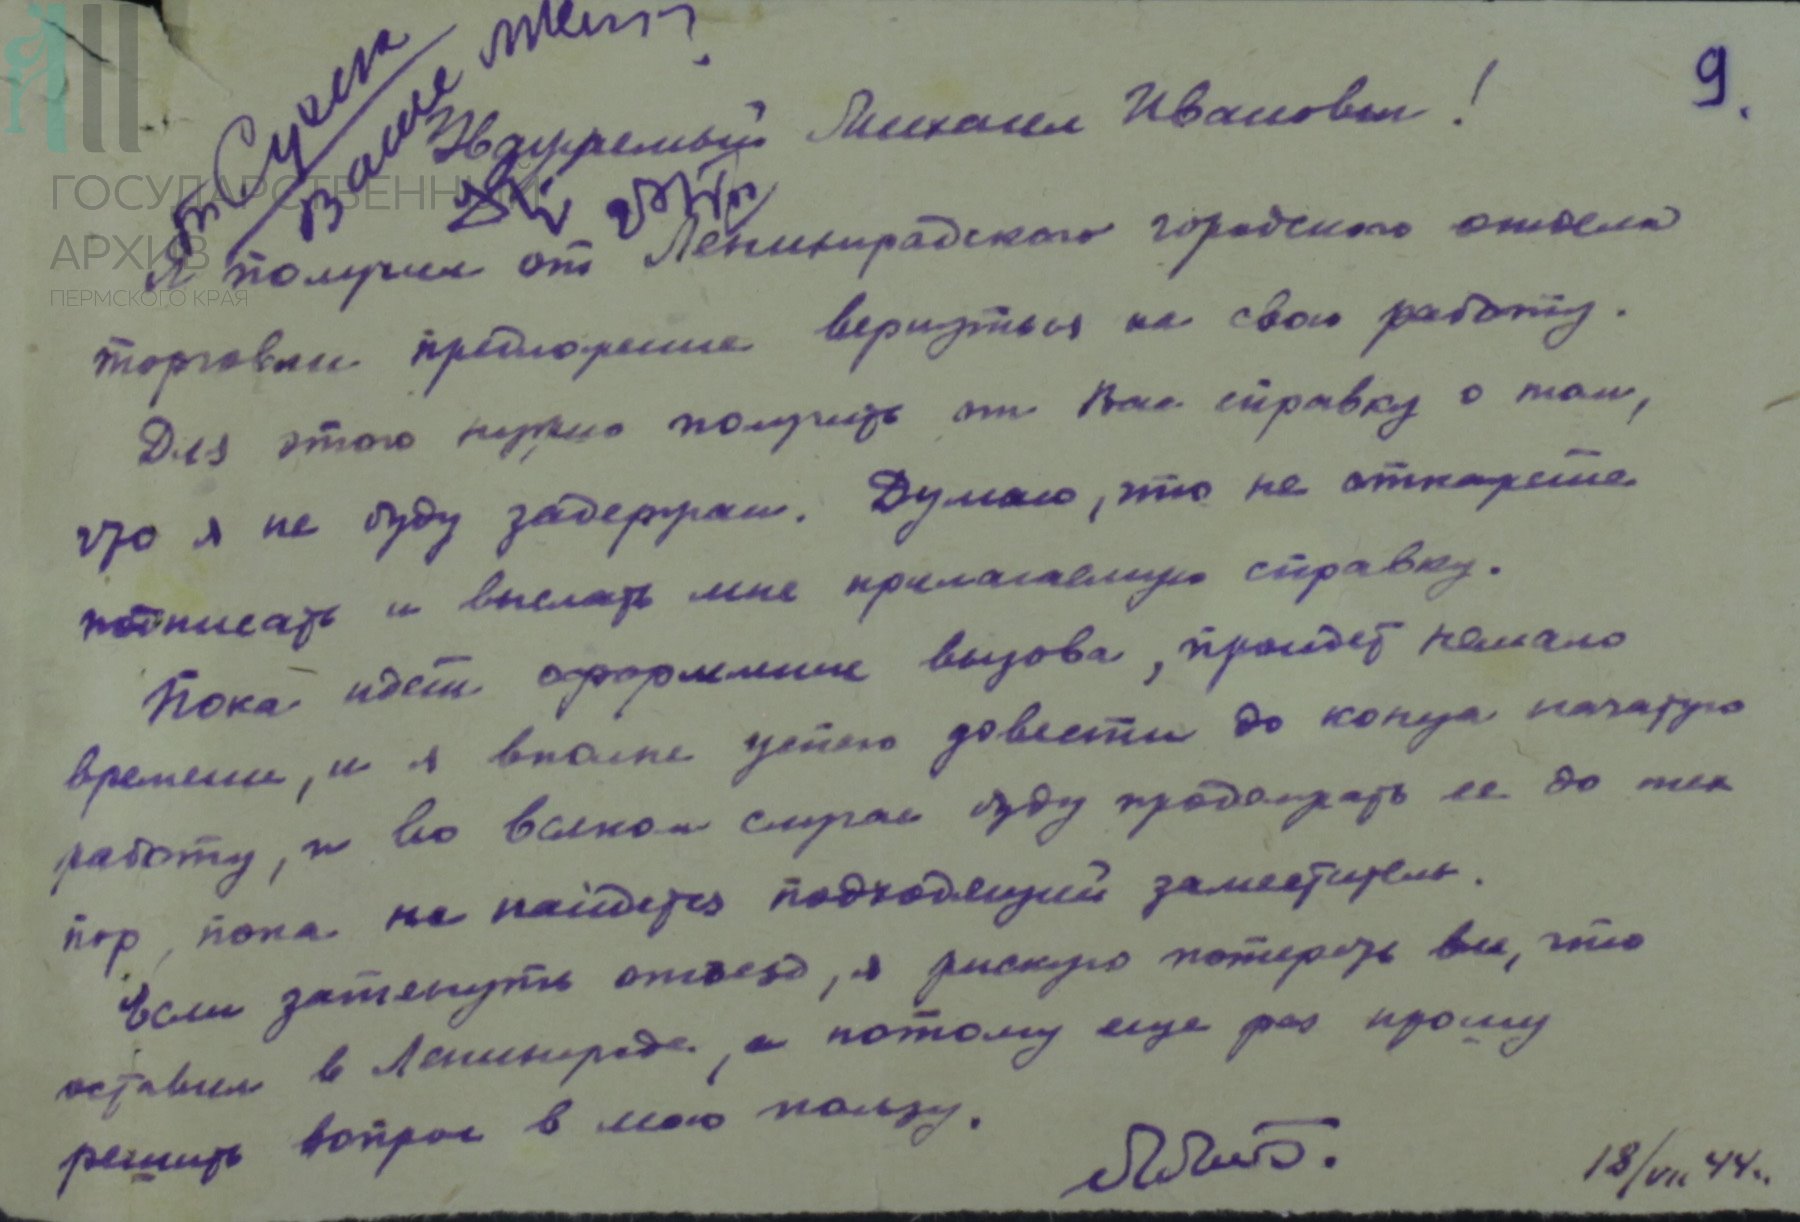 т. Сухих
Ваше мнение?
9.
Уважаемый Михаил Иванович!
ГОСУДАРСТВЕННЫЙ
АРХИВ
ПЕРМСКОГО КРАЯ
Я получил от Ленинградского городского отдела
торговли предложение вернуться на свою работу.
Для этого нужно получить от Вас справку о том,
что я не буду задержан. Думаю, что не откажете
подписать и выслать мне прилагаемую справку.
Пока идет оформление вызова, пройдет немало
времени, и я вполне успею довести до конца начатую
работу, и во всяком случае буду продолжать ее до тех
пор, пока не найдется подходящий заместитель.
Если затянуть отъезд, я рискую потерять все, что
оставил в Ленинграде, а потому еще раз прошу
решить вопрос в мою пользу.
18/VII 44 г.